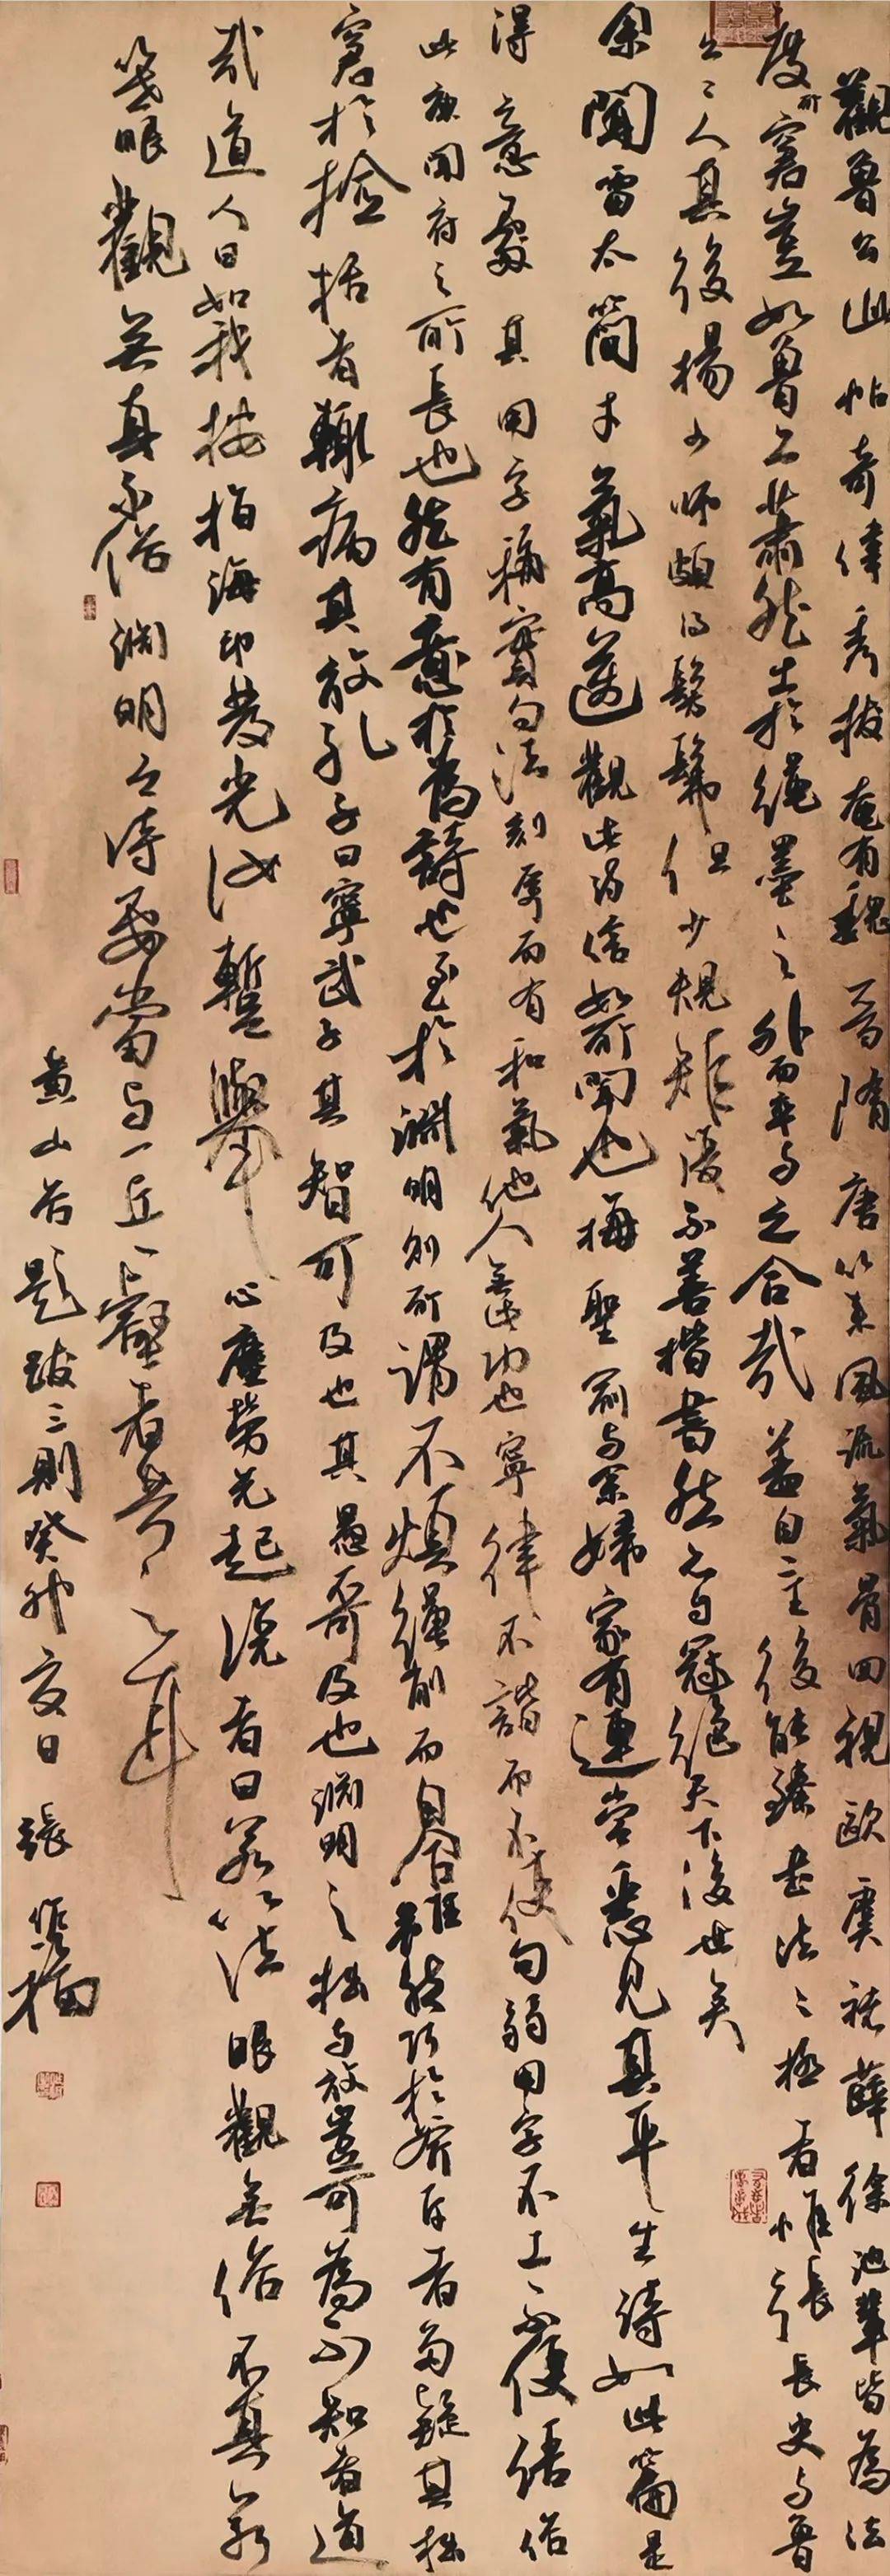 觀魯公此帖奇偉秀拔奄有魏晉隋唐以來風流氣骨回視歐虞褚薛徐沈輩皆為法
度所窘豈如魯公蕭然出於繩墨之外而卒與之合哉蓋自二王後能臻書法之極者惟張長史與魯
公二人其後楊少師頗得髣髴但少規矩復不善楷書然亦自冠絕天下後世矣
余聞雷太簡才氣高邁觀此詩信如所聞也梅聖俞與余婦家有連嘗悉見其平生詩如此篇是
得意處其用字穩實句法刻厲而有和氣他人無此功也寧律不諧而不使句弱用字不工不使語俗
此庾開府之所長也然有意於為詩也至於淵明則所謂不煩繩削而自合雖然巧於斧斤者多疑其拙
窘於檢括者輒病其放孔子曰寧武子其智可及也其愚不可及也淵明之拙與放豈可為不知者道
哉道人曰如我按指海印發光汝暫舉心塵勞先起說者曰若以法眼觀無俗不真若
以世眼觀無真不俗淵明之詩要當與一丘一壑者共之耳
黃山谷題跋三則癸卯夏日張